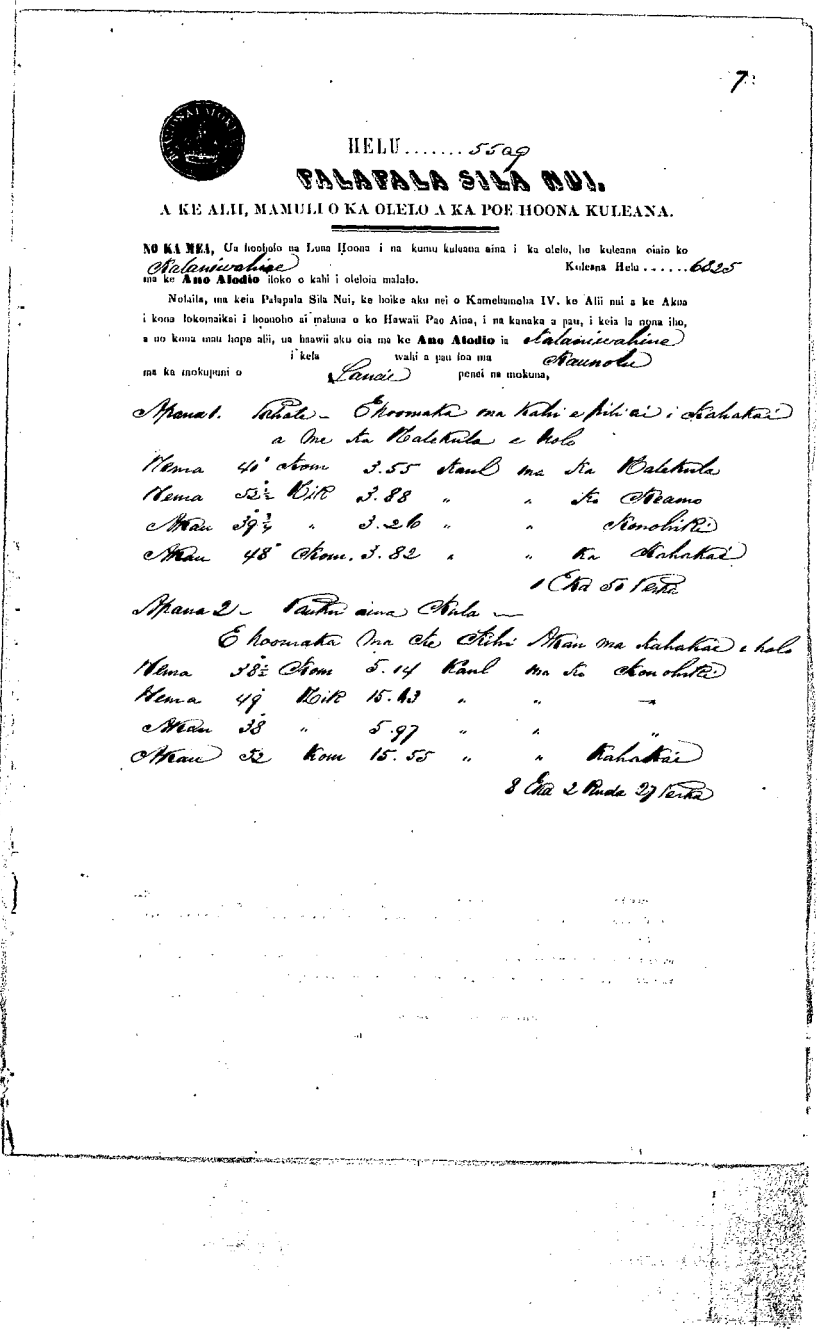 7
HELU.......5509
PALAPALA SILA NUI.
A KE ALII, MAMULI O KA OLELO A KA POE HOONA KULEANA.
NO KA MEA, Ua hooholo na Luna Hoona i na kumu kuleana aina i ka olelo, he kuleana oiaio ko
Kalaniwahine Kuleana Helu......6825
ma ke Ano Alodio iloko o kahi i oleloia malalo.
Nolaila, ma keia Palapala Sila Nui, ke hoike aku nei o Kamehameha IV. ke Alii nui a ke Akua
i kona lokomaikai i hoonoho ai maluna o ko Hawaii Pae Aina, i na kanaka a pau, i keia la nona iho,
a no kona mau hope alii, ua haawii aku oia ma ke Ano Alodio ia Kalaniwahine
i kela wahi a pau loa ma Kaunolu
ma ka mokupuni o Lanai penei na mokuna,
Apana 1. Pahale - E hoomaka ma kahi e pili ai i Kahakai
a me ka Halekula e holo
Hema 40° Kom 3.55 Kaul ma ka Halekula
Hema 52½ Hik 3.88 " " ko Keamo
Akau 39¾ " 3.26 " " Konohiki
Akau 48° Kom. 3.82 " " Ka Kahakai
1 Eka 50 Perka
Apana 2 - Pauku aina Kula -
E hoomaka ma ke Kihi Akau ma Kahakai e holo
Hema 38½ Kom 5.14 Kaul ma ko Konohiki
Hema 49° Hik 15.43 " " "
Akau 38 " 5.97 " " "
Akau 52 Kom 15.55 " " Kahakai
8 Eka 2 Ruda 27 Perka